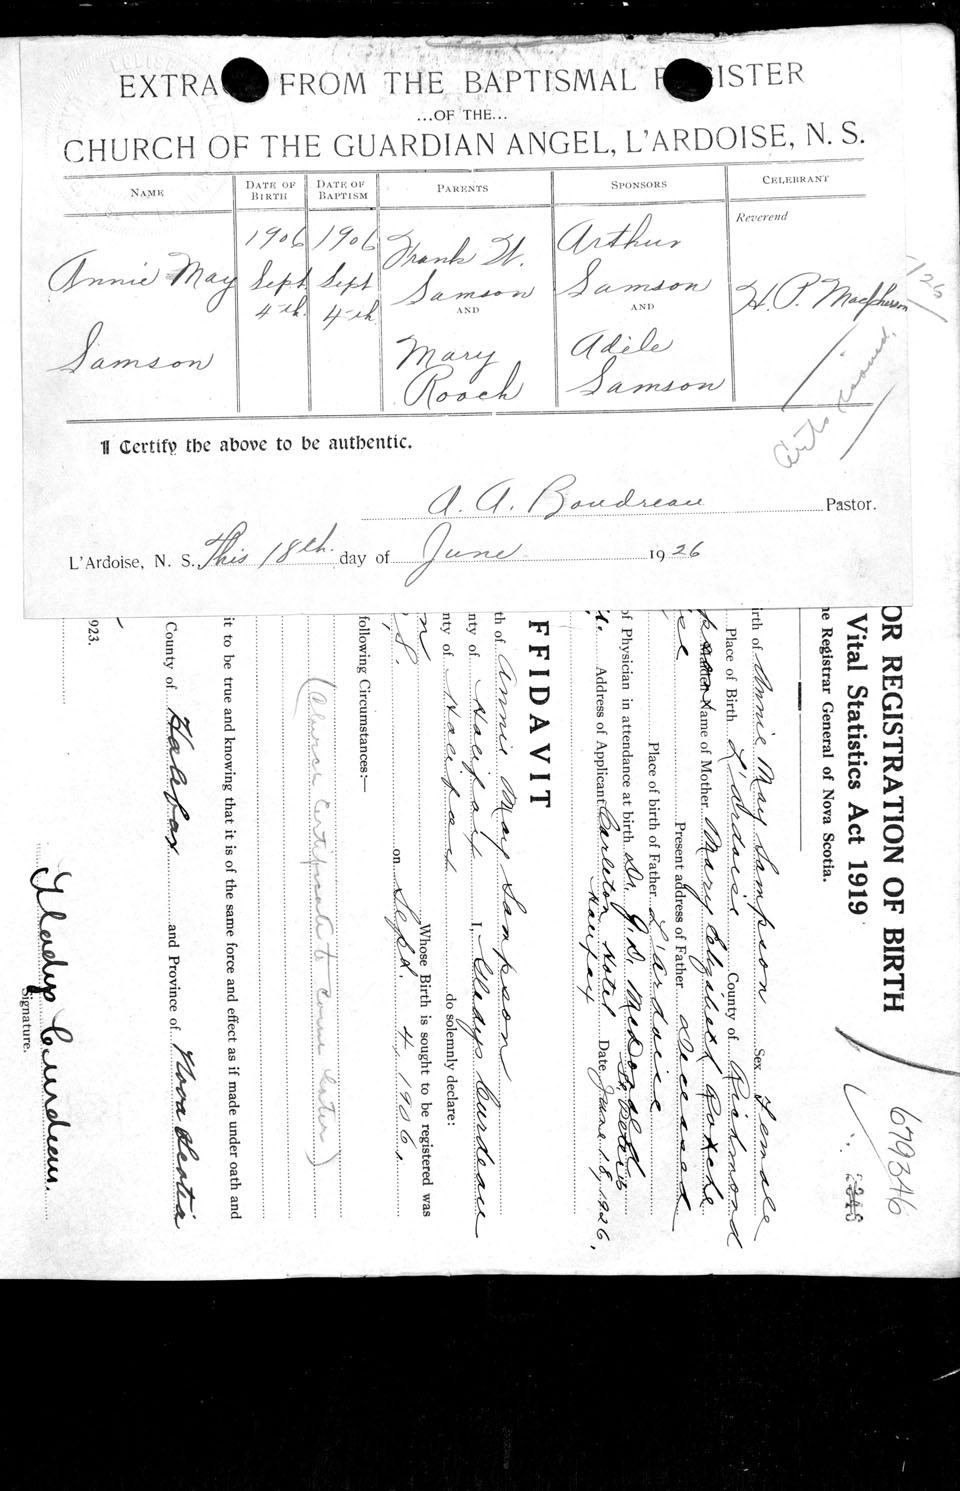 EXTRA FROM THE BAPTISMAL R ISTER
...OF THE...
CHURCH OF THE GUARDIAN ANGEL, L'ARDOISE, N. S.
NAME
DATE OF BIRTH
DATE OF BAPTISM
PARENTS
SPONSORS
CELEBRANT
Annie May
Samson
1906
Sept
4th
1906
Sept
4th
Frank W.
Samson
AND
Mary
Rooch
Arthur
Samson
AND
Adèle
Samson
Reverend
H. P. MacPherson
126
Certs issued.
I Certify the above to be authentic.
A. A. Boudreau Pastor.
L'Ardoise, N. S., This 18th. day of June 1926
OR REGISTRATION OF BIRTH
Vital Statistics Act 1919
he Registrar General of Nova Scotia.
679346
irth of Annie May Sampson Sex Female
Place of Birth L'Ardoise County of Richmond
Maiden Name of Mother Mary Elizabeth Roache
Present address of Father Deceased
Place of birth of Father L'Ardoise
of Physician in attendance at birth Dr. J. D. McDonald
St. Peter's
Address of Applicant Carleton Hotel Date June 18, 1926.
Halifax
FFIDAVIT
th of Annie May Sampson
nty of Halifax I, Gladys Curdeau
nty of Halifax do solemnly declare:
Whose Birth is sought to be registered was
S. on Sept. 4, 1906.
following Circumstances:—
(Church Certificate to come later)
it to be true and knowing that it is of the same force and effect as if made under oath and
County of Halifax and Province of Nova Scotia
923.
Gladys Curdeau.
Signature.